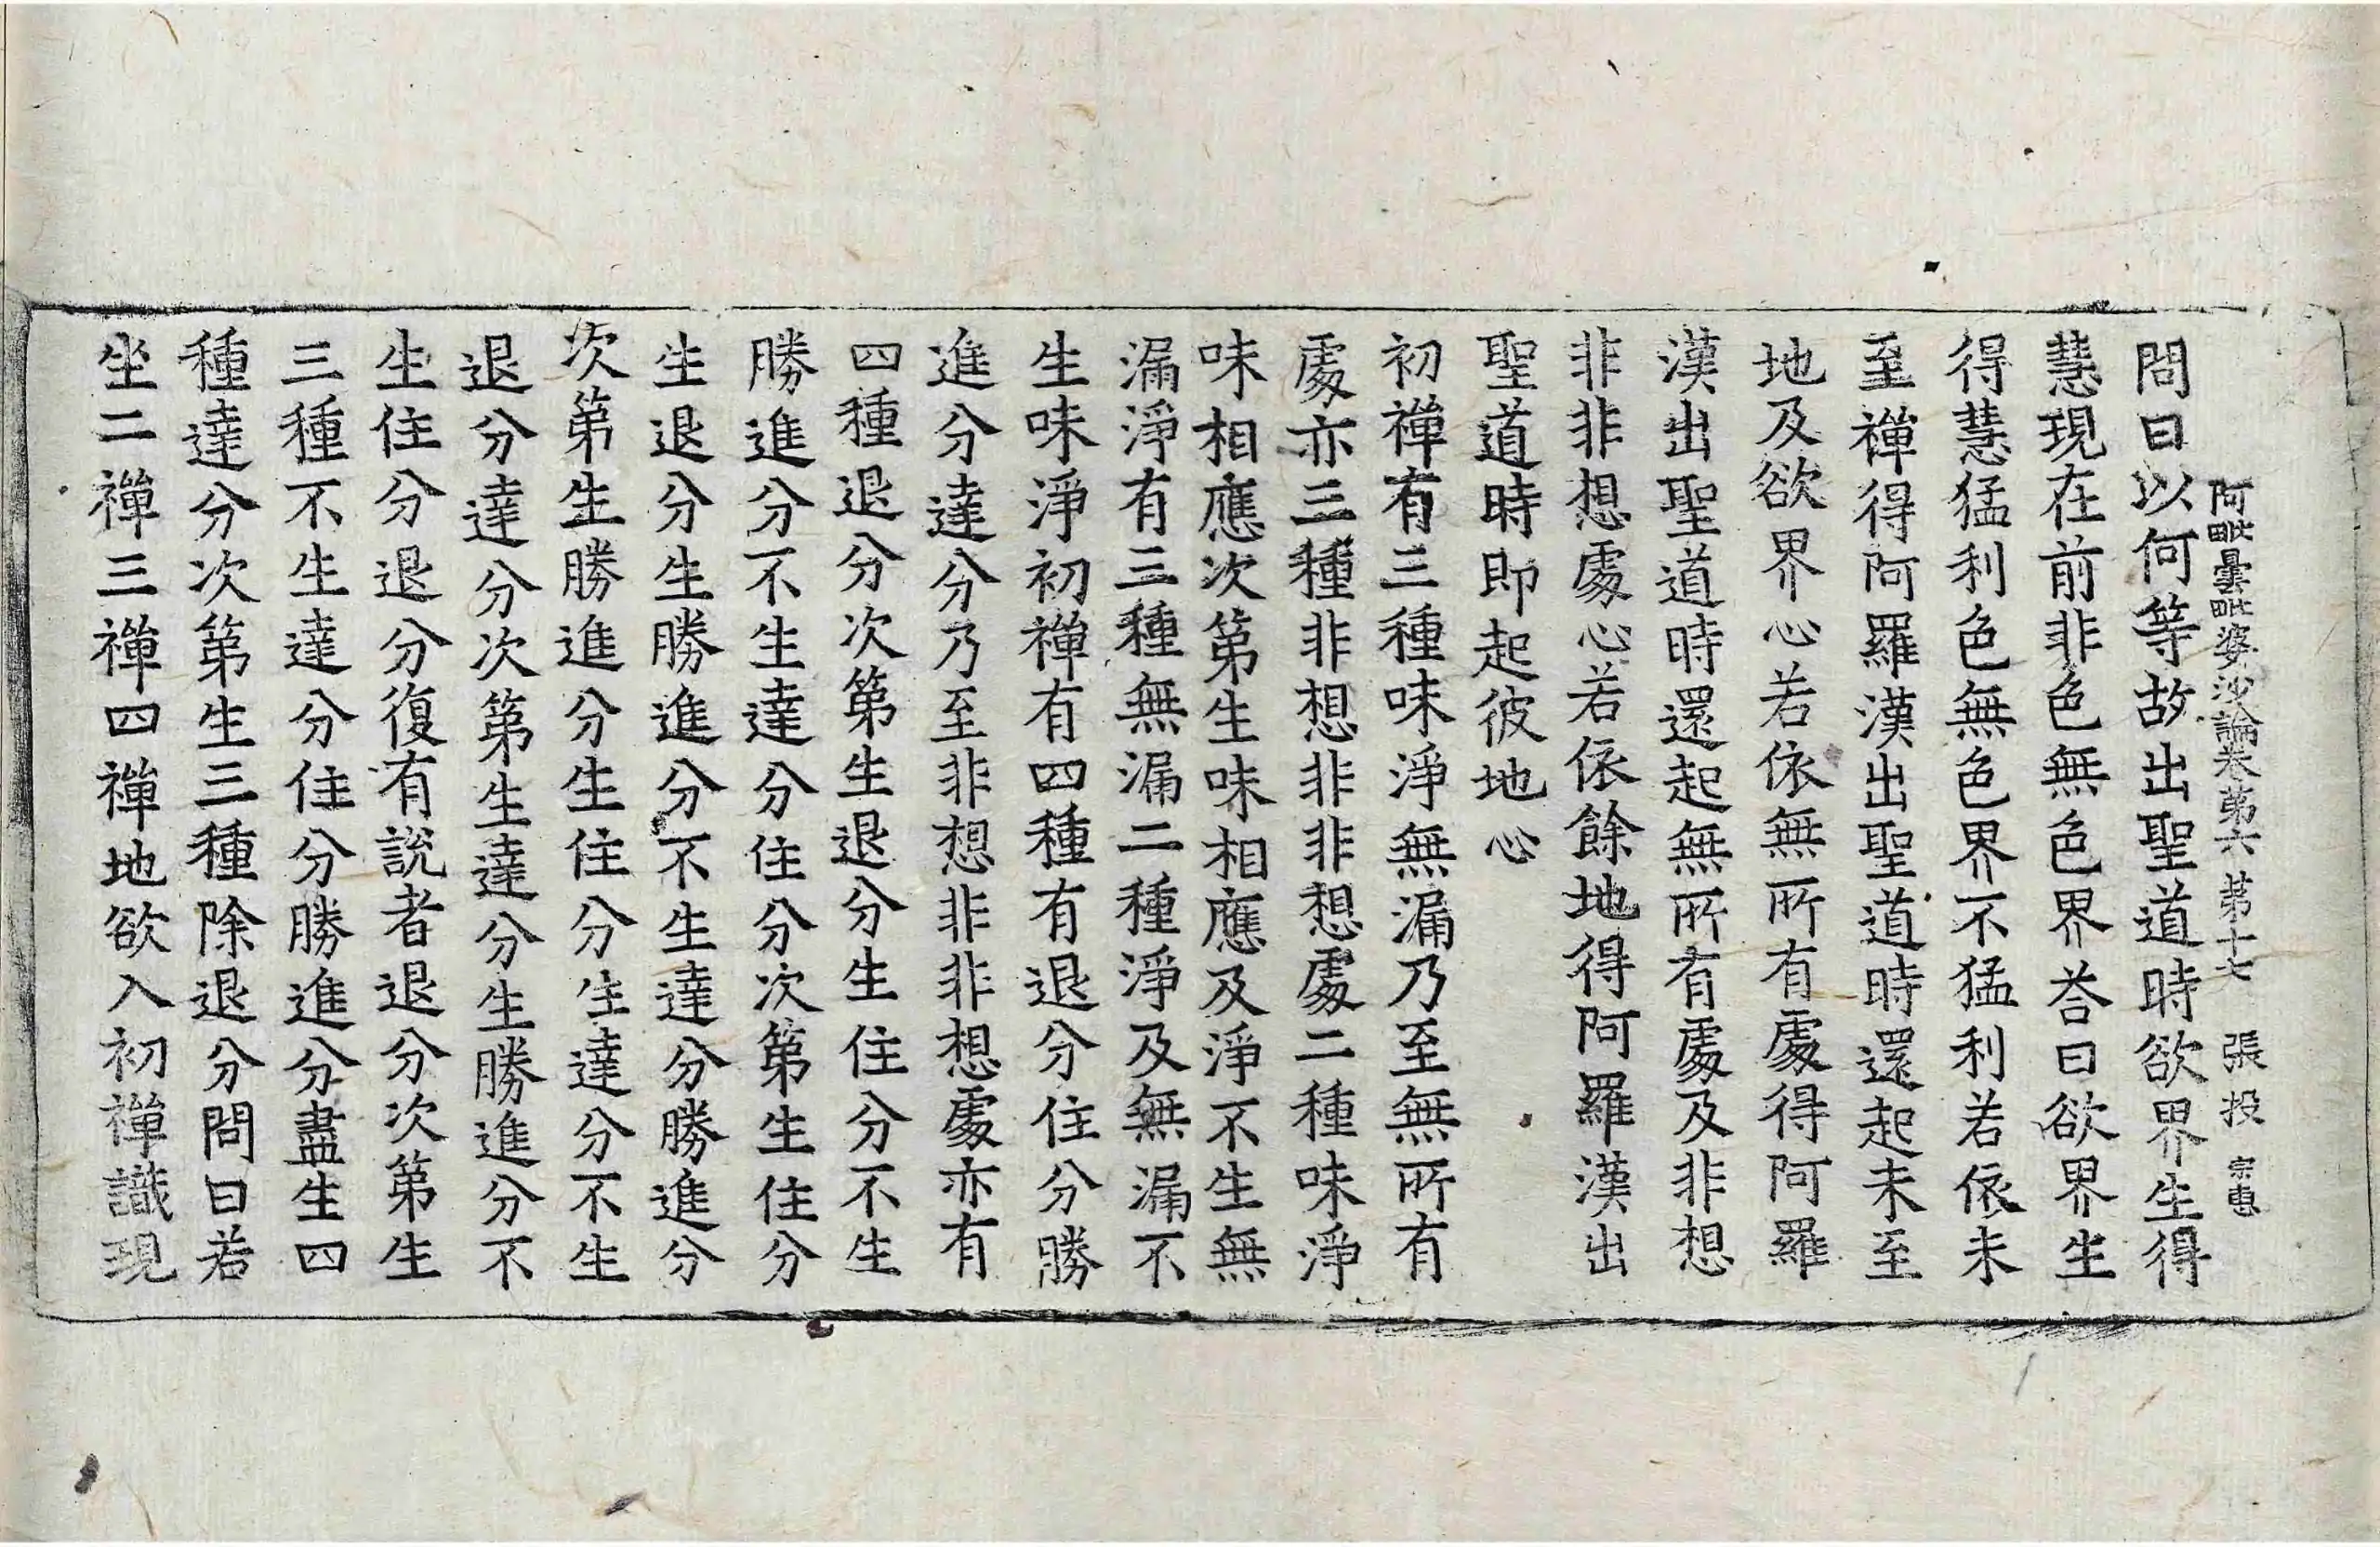 阿毗曇毗婆沙論卷第六 第十七 張 投 宗
問曰以何等故出聖道時欲界生得
慧現在前非色無色界荅曰欲界生
得慧猛利色無色界不猛利若依未
至禪得阿羅漢出聖道時還起未至
地及欲界心若依無所有處得阿羅
漢出聖道時還起無所有處及非想
非非想處心若依餘地得阿羅漢出
聖道時即起彼地心
初禪有三種味淨無漏乃至無所有
處亦三種非想非非想處二種味淨
味相應次第生味相應及淨不生無
漏淨有三種無漏二種淨及無漏不
生味淨初禪有四種有退分住分勝
進分達分乃至非想非非想處亦有
四種退分次第生退分生住分不生
勝進分不生達分住分次第生住分
生退分生勝進分不生達分勝進分
次第生勝進分生住分生達分不生
退分達分次第生達分生勝進分不
生住分退分復有說者退分次第生
三種不生達分住分勝進分盡生四
種達分次第生三種除退分問曰若
坐二禪三禪四禪地欲入初禪識現